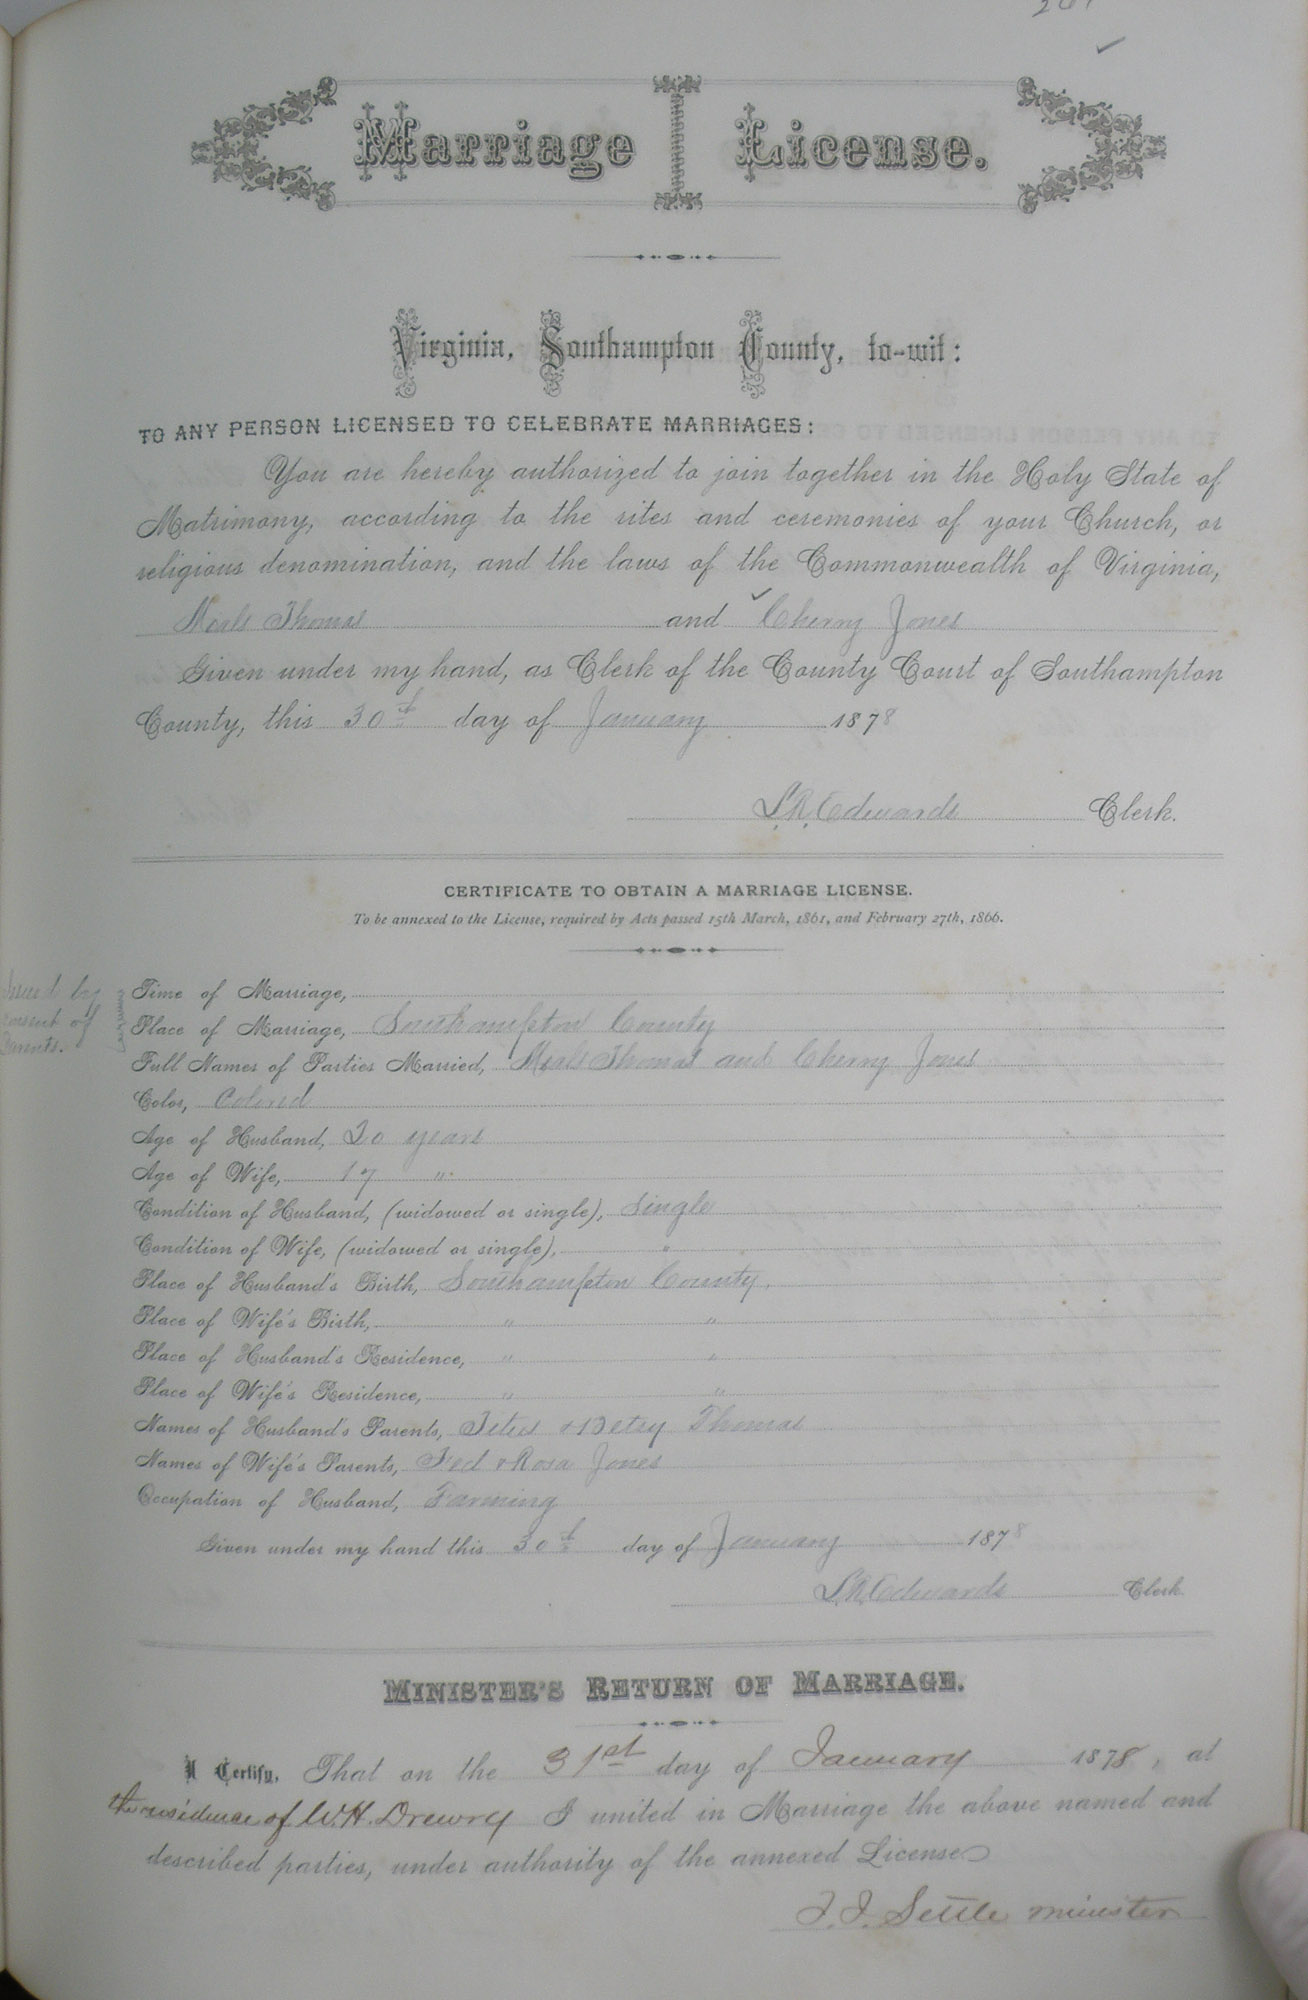 Marriage License.
Virginia, Southampton County, to-wit:
TO ANY PERSON LICENSED TO CELEBRATE MARRIAGES:
You are hereby authorized to join together in the Holy State of
Matrimony, according to the rites and ceremonies of your Church, or
religious denomination, and the laws of the Commonwealth of Virginia,
Thomas and Cherry Jones
Given under my hand, as Clerk of the County Court of Southampton
County, this 30th day of January 1878
L.R. Edwards Clerk.
CERTIFICATE TO OBTAIN A MARRIAGE LICENSE.
To be annexed to the License, required by Acts passed 15th March, 1861, and February 27th, 1866.
Issued by
consent of
Parents.
Time of Marriage,
Place of Marriage, Southampton County
Full Names of Parties Married, Thomas and Cherry Jones
Color, Colored
Age of Husband, 20 years
Age of Wife, 17 "
Condition of Husband, (widowed or single), single
Condition of Wife, (widowed or single), "
Place of Husband's Birth, Southampton County.
Place of Wife's Birth, " "
Place of Husband's Residence, " "
Place of Wife's Residence, " "
Names of Husband's Parents, & Betsy Thomas
Names of Wife's Parents, & Rosa Jones
Occupation of Husband, Farming
Given under my hand this 30th day of January 1878
L.R. Edwards Clerk
MINISTER'S RETURN OF MARRIAGE.
I Certify, That on the 31st day of January 1878, at
the residence of W.H. Drewry I united in Marriage the above named and
described parties, under authority of the annexed License
Settle minister